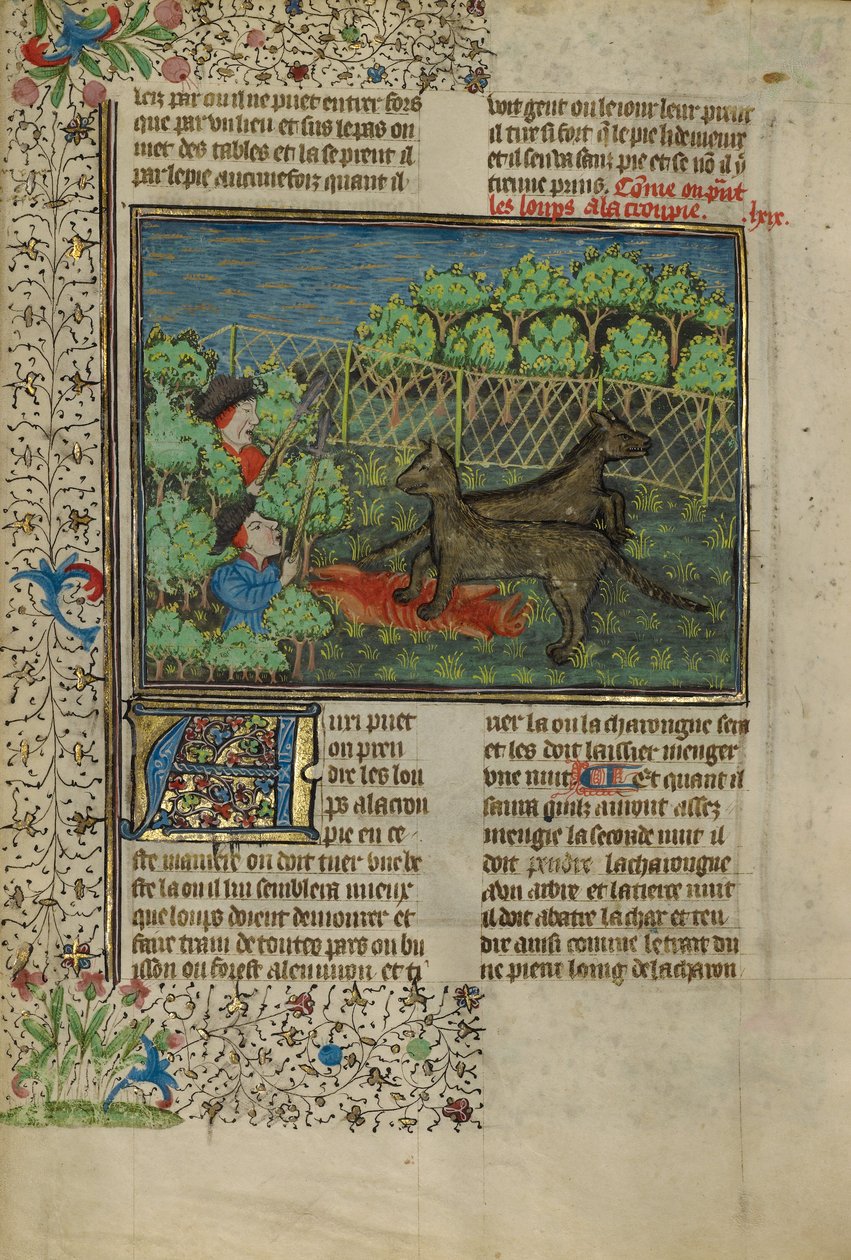 leiz par ou il ne puet entrer fors
que par vn lieu et sus le pas on
met des tables et la se prent il
par le pie aucune foiz quant il
voit gent ou le iour leur prent
il tire si fort q̃ le pie li demeure
et il sen va sanz pie et se nõ il y
tienne prins. Cõme on pr̃nt
les loups a la croupie. .lxix.
Auri puet
on pren
dre les lou
ps a la crou
pie en ce
ste maniere on doit tuer vne be
ste la ou il lui semblera mieux
que loups doient demourer et
faire train de toutes pars ou bu
isson ou forest alenuiron et ti
rer la ou la charongne sera
et les doit laissier menger
vne nuit Et quant il
saura quilz auront assez
mengie la seconde nuit il
doit pendre la charongne
a vn arbre et la tierce nuit
il doit abatre la char et ten
dre ainsi comme le trait du
ne pierre loing de la charon